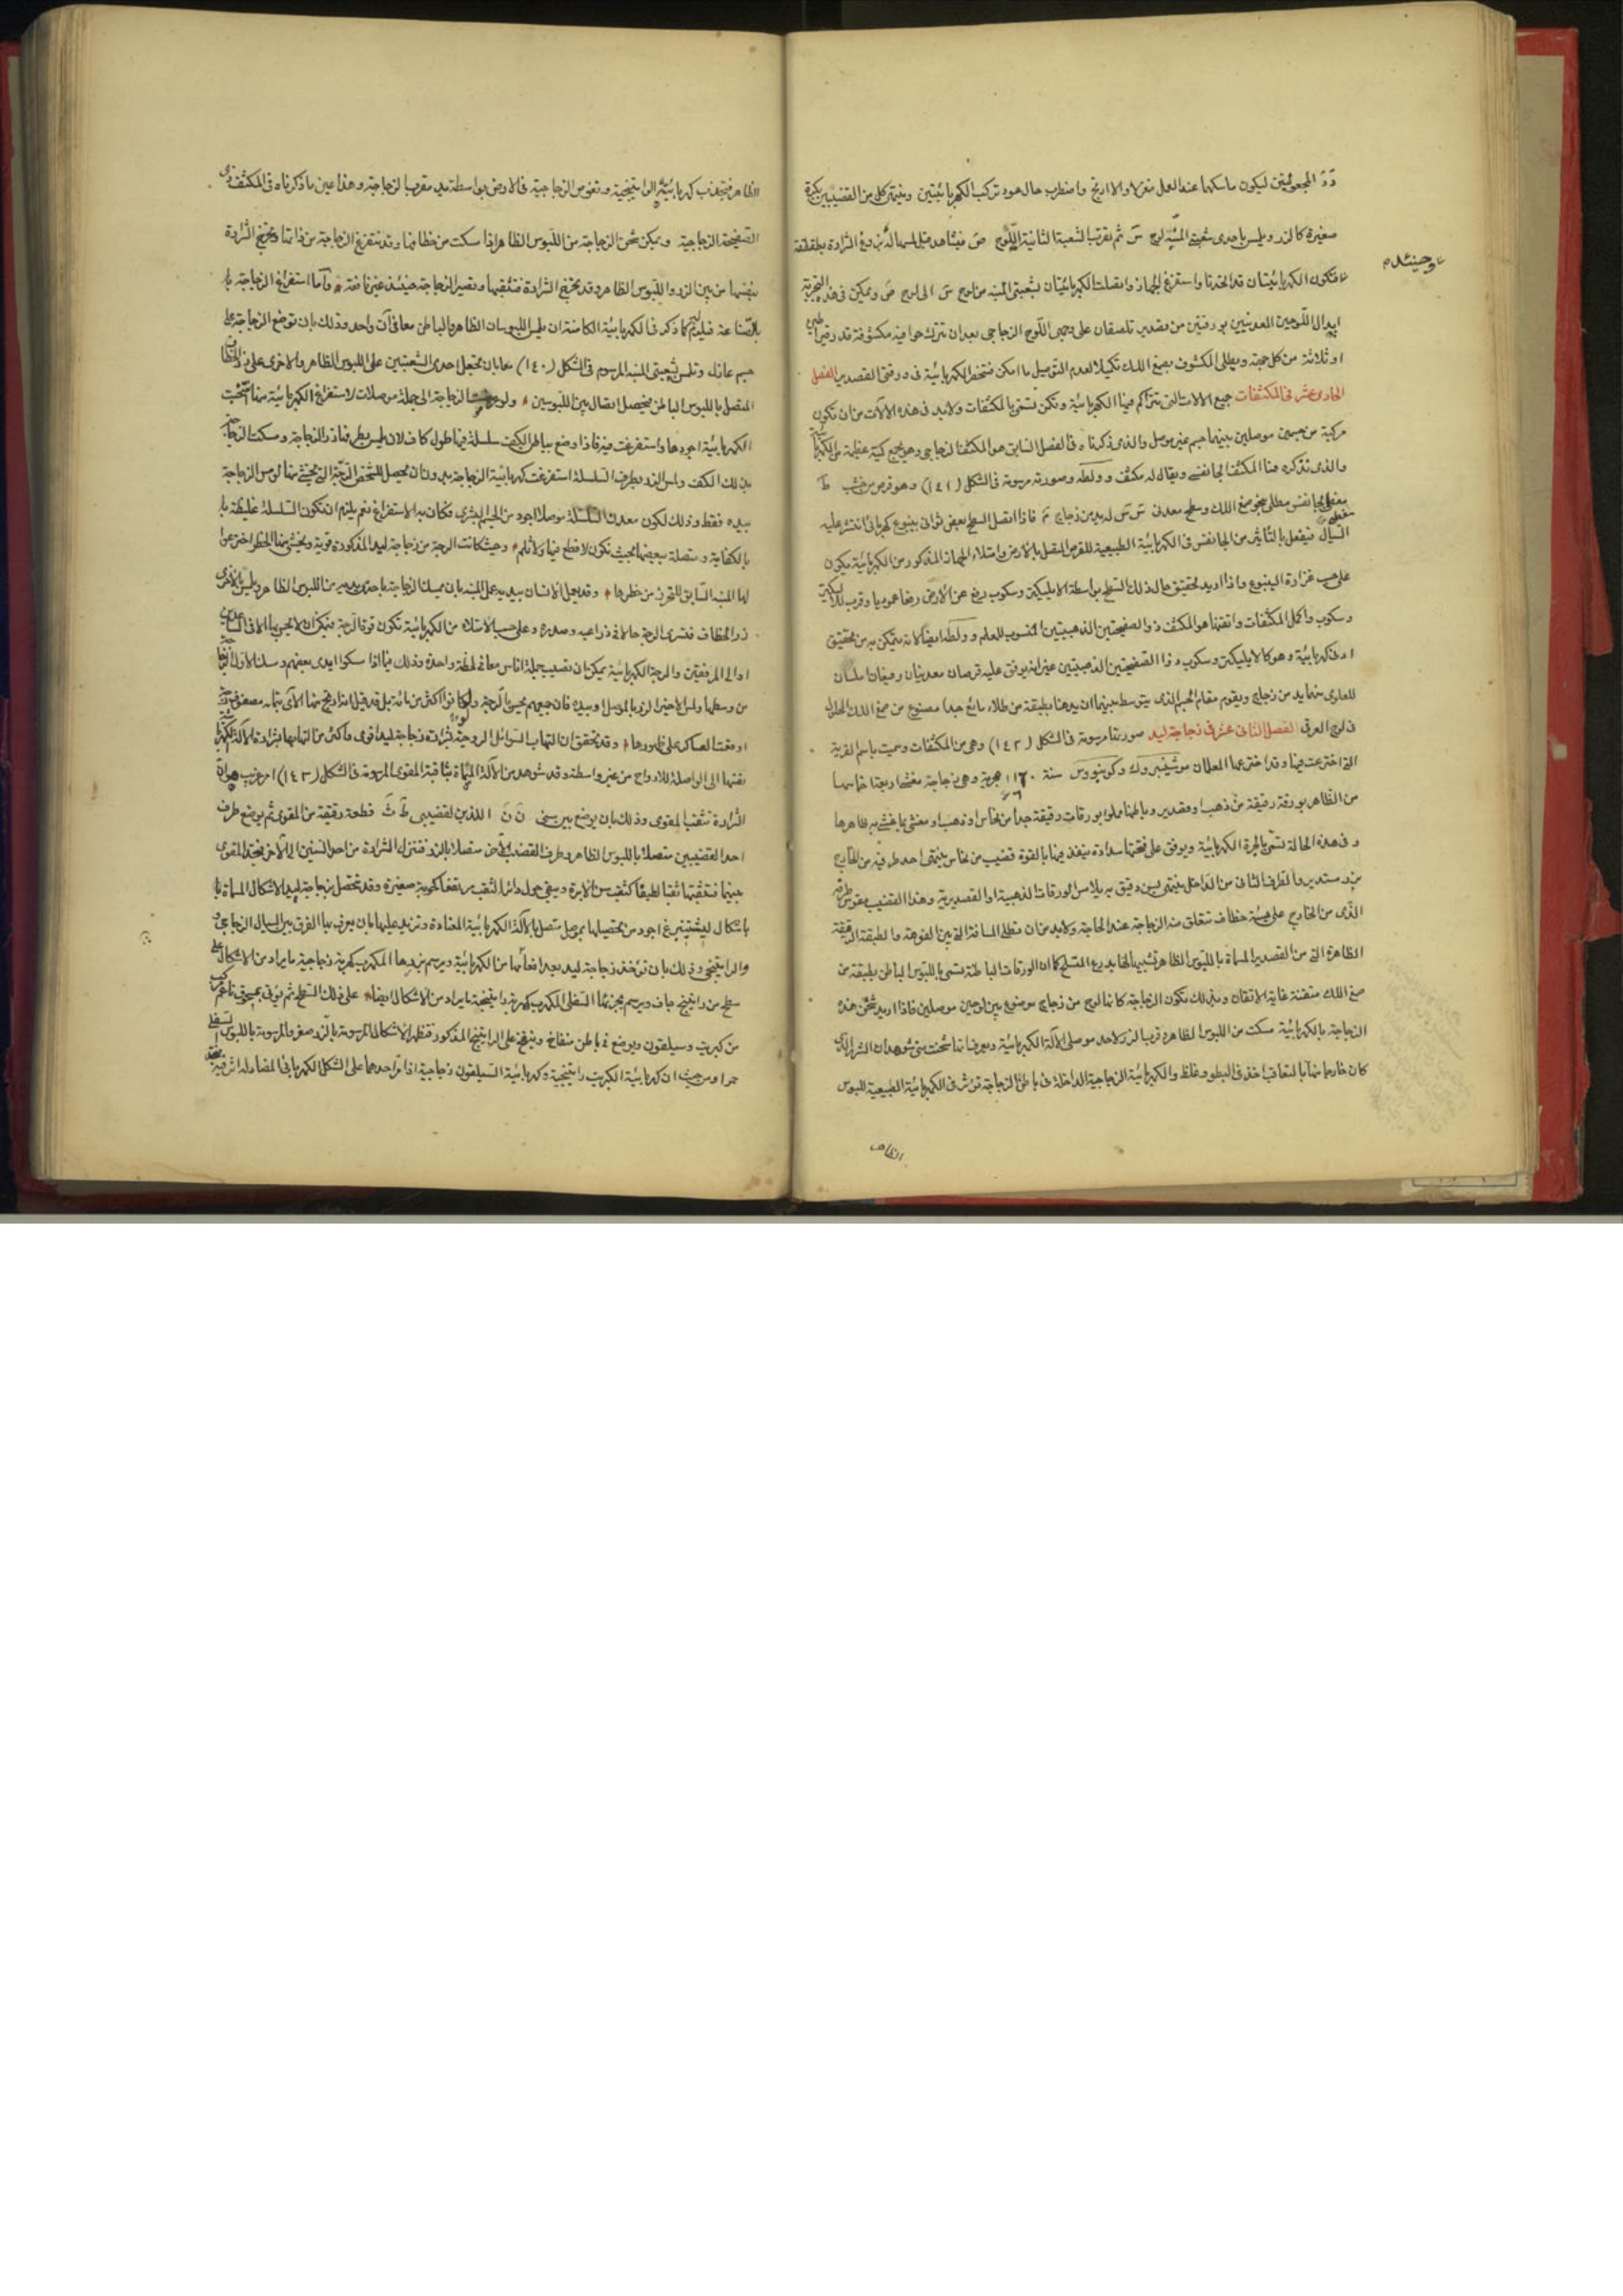 دَ دَ المجعولتين ليكون ماسكهما عند العمل منعزلا والا ارتج واضطرب حال عود تركب الكهربائيتين وينتهى كل من القضيبين بكرة
صغيرة كالزر ويلمس باحدى شعبتى المنبه لوح سَ ثم تقرب الشعبة الثانية للوح صَ فيشاهد قبل المماسة بزوغ الشرارة بطقطقة
فتكون الكهربائيتان قد اتحدتا واستفرغ الجهاز وانتقلت الكهربائيتان بشعبتى المنبه من لوح سَ الى لوح صَ ويمكن فى هذه التجربة
وحينئذ
ابدال اللوحين المعدنيين بورقتين من قصدير تلصقان على وجهى اللوح الزجاجى بعد ان تترك حوافيه مكشوفة قدر قيراطين
او ثلاثة من كل جهة ويطلى المكشوف بصمغ اللك تكميلا لعدم التوصيل ما امكن فتنحصر الكهربائية فى ورقتى القصدير الفصل
الحادى عشر فى المكثفات جميع الالات التى تتراكم فيها الكهربائية وتكمن تسمى بالمكثفات ولابد فى هذه الالات من ان تكون
مركبة من جسمين موصلين بينهما جسم غير موصل والذى ذكرناه فى الفصل السابق هو المكثف الزجاجى وهو يجمع كمية عظيمة من الكهربائية
والذى نذكره هنا المكثف الجانفسى ويقال له مكثف وولطه وصورته مرسومة فى الشكل (١٤١) وهو قرص من خشب طَ
مغطى بجانفس مطلى بنحو صمغ اللك وسطح معدنى سَ سَ له يد من زجاج مَ فاذا اتصل السطح بعض ثوانى بينبوع كهربائى انتشر عليه
السيال فيفعل بالتأثير من الجانفس فى الكهربائية الطبيعية للقرص المتصل بالارض وامتلاء الجهاز المذكور من الكهربائية يكون
على حسب غزارة الينبوع واذا اريد تحقيق حال ذلك السطح بواسطة الايليكتروسكوب رفع عن الارض رفعا عموديا وقرب للايليكتر
وسكوب واكمل المكثفات واتقنها هو المكثف ذو الصفيحتين الذهبيتين المنسوب للمعلم وولطه ايضا لانه يتمكن به من تحقيق
ادنى كهربائية وهو كالايليكتروسكوب ذا الصفيحتين الذهبيتين غير انه يوفق عليه قرصان معدنيان رقيقان املسان
للعلوى منهما يد من زجاج ويقوم مقام الجسم الذى يتوسط بينهما ان يدهنا بطبقة من طلاء مائع جدا مصنوع من صمغ اللك المحلول
فى روح العرقى الفصل الثانى عشر فى زجاجة ليد صورتها مرسومة فى الشكل (١٤٢) وهى من المكثفات وسميت باسم القرية
التى اخترعت فيها وقد اخترعها المعلمان موشنبروك وكونيووس سنة ١١٦٠ هجرية وهى زجاجة مغشا اربعة اخماسها
من الظاهر بورقة رقيقة من ذهب او قصدير وباطنها مملو بورقات رقيقة جدا من نحاس او ذهب او مغشى بما غشى به ظاهرها
وفى هذه الحالة تسمى بالجرة الكهربائية ويوفق على فتحتها سدادة ينفذ فيها بالقوة قضيب من نحاس ينتهى احد طرفيه من الخارج
بزر مستدير والطرف الثانى من الداخل ينتهى بسن دقيق به يلامس الورقات الذهبية او القصديرية وهذا القضيب مقوس طرفه
الذى من الخارج على هيئة خطاف تتعلق منه الزجاجة عند الحاجة ولابد من ان تطلى المسافة التى بين الفوهة والطبقة الرقيقة
الظاهرة التى من القصدير المسماة باللبوس الظاهر تشبيها لها بدرع المتسلح كما ان الورقات الباطنة تسمى باللبوس الباطن بطبقة من
صمغ اللك متقنة غاية الاتقان وبذلك تكون الزجاجة كانها لوح من زجاج موضوع بين لوحين موصلين فاذا اريد شحن هذه
الزجاجة بالكهربائية مسكت من اللبوس الظاهر وقرب الزر لاحد موصلى الآلة الكهربائية ويعرف انها شحنت متى شوهد ان الشرر الذى
كان خارجا منها بالتعاقب اخذ فى البطو وغلظ والكهربائية الزجاجية الداخلة فى باطن الزجاجة تؤثر فى الكهربائية الطبيعية للبوس
الظاهر
الظاهر فتجذب كهربائيته الراتينجية وتغوص الزجاجية فى الارض بواسطة يد مقرب الزجاجة وهذا عين ما ذكرناه فى المكثف ذى
الصفيحة الزجاجية ويمكن شحن الزجاجة من اللبوس الظاهر اذا مسكت من خطافها وقد تستفرغ الزجاجة من ذاتها وتخرج الشرارة
بنفسها من بين الزر واللبوس الظاهر وقد تخترق الشرارة فتثقبها وتصير الزجاجة حينئذ غير نافعة واما استفراغ الزجاجة
بالصناعة فيلزم كما ذكر فى الكهربائية الكامنة ان يلمس اللبوسان الظاهر والباطن معا فى آن واحد وذلك بان توضع الزجاجة على
جسم عازل وتلمس بشعبتى المنبه المرسوم فى الشكل (١٤٠) معا بان تجعل احدى الشعبتين على اللبوس الظاهر والاخرى على زر الخطاف
المتصل باللبوس الباطن فيحصل اتصال بين اللبوسين ولو عرضت الزجاجة الى جملة موصلات لاستفراغ الكهربائية منها انتخبت
الكهربائية اجودها واستفرغت منه فاذا وضع بباطن الكف سلسلة فيها طول كاف لان يلمس بطرفها زر الزجاجة ومسكت الزجاجة
بذلك الكف ولمس الزر بطرف السلسلة استفرغت كهربائية الزجاجة بدون ان يحصل للشخص الرجة التى يخشى منها لو لمس الزجاجة
بيده فقط وذلك لكون معدن السلسلة موصلا اجود من الجسم البشرى فكان به الاستفراغ نعم يلزم ان تكون السلسلة غليظة
بالكفاية ومتصلة ببعضها بحيث تكون لا قطع فيها ولا ثلم وحيث كانت الرجة من زجاجة ليد المذكورة قوية ويخشى منها الخطر اخترعوا
لها المنبه السابق للتحرز من خطرها وقد يعمل الانسان بيديه عمل المنبه بان يمسك الزجاجة باحدى يديه من اللبوس الظاهر ويلمس بالاخرى
زر الخطاف فتسرى الرجة حالا فى ذراعيه وصدره وعلى حسب الامتلاء من الكهربائية تكون قوة الرجة فيمكن ان لا يحس بها الا فى الساعدين
او الى المرفقين والرجة الكهربائية يمكن ان تصيب جملة اناس معا فى لحظة واحدة وذلك فيما اذا مسكوا ايدى بعضهم ومسك الاول الزجاجة
من وسطها ولمس الاخير الزر بالموصل او بيده فان جميعهم يحس بالرجة ولو كانوا اكثر من مائة بل قد قيل انه ارتج منها الآى بتمامه مصفوف
او وقعت العساكر على ظهورها وقد تحقق ان التهاب السوائل الروحية بشرارة زجاجة ليد اقوى واكثر من التهابها بشرارة الآلة الكهربائية
نفسها الى الواصلة للارواح من غير واسطة وقد شوهد من الآلة المسماة بثاقبة المقوى المرسومة فى الشكل (١٤٣) امر غريب هو ان
الشرارة تثقب المقوى وذلك بان يوضع بين سنى نَ نَ اللذين لقضيبى طَ ثَ قطعة رقيقة من المقوى ثم يوضع طرف
احد القضيبين متصلا باللبوس الظاهر وطرف القضيب الآخر متصلا بالزر فتنزل الشرارة من احد السنين الى الآخر فتجد المقوى
بينهما فتثقبها ثقبا لطيفا كثقب سن الابرة ويبقى حول دائر الثقب مرتفعا كحوية صغيرة وقد تتحصل بزجاجة ليد الاشكال المسماة
باشكال ليشتنبرغ اجود من تحصيلها بموصل متصل بالآلة الكهربائية المعتادة وتزيد عليها بان يعرف بها الفرق بين السيال الزجاجى
والراتينجى وذلك بان تؤخذ زجاجة ليد بعد اتمامها من الكهربائية ويرسم بزرها المكهرب كهربة زجاجية ما يراد من الاشكال على
سطح من راتينج جاف ويرسم بجزئها السفلى المكهرب كهربة راتينجية ما يراد من الاشكال ايضا على ذلك السطح ثم يؤتى بمسحوق ناعم مركب
من كبريت وسيلقون ويوضع فى باطن منفاخ وينفخ على الراتينج المذكور فتظهر الاشكال المرسومة بالزر صفر والمرسومة باللبوس السفلى
حمرا ومن حيث ان كهربائية الكبريت راتينجية وكهربائية السيلقون زجاجية اذا مر احدهما على الشكل الكهربائى المضاد له اثر فيه